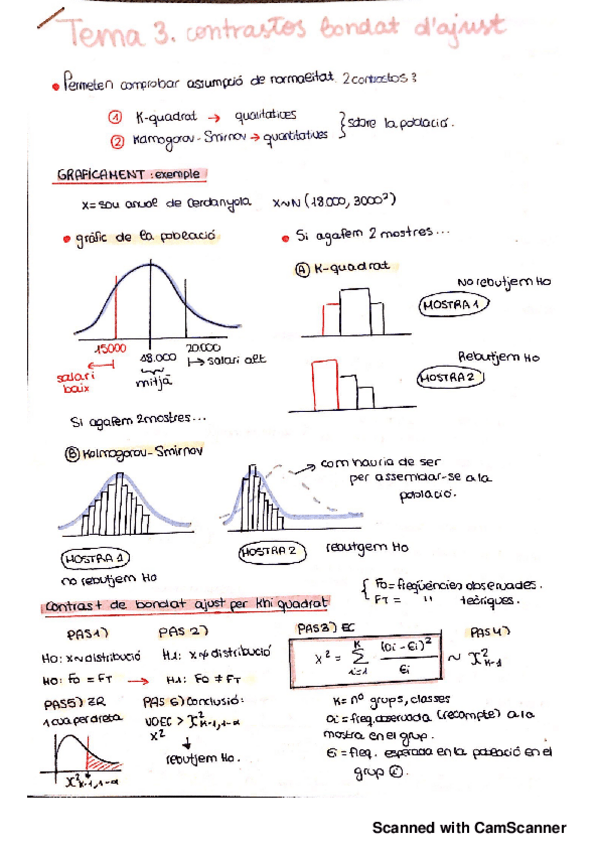 Tema 3. contrastos bondat d'ajust
• Permeten comprobar assumpció de normalitat 2 contrastos:
① K-quadrat → qualitatives
② Kolmogorov-Smirnov → quantitatives } sobre la població.
GRÀFICAMENT: exemple
X = sou anual de Cerdanyola X~N (18.000, 3000²)
• gràfic de la població
15000
18.000
20.000
salari baix
mitjà
salari alt
• Si agafem 2 mostres...
Ⓐ K-quadrat
No rebutjem Ho
MOSTRA 1
Rebutjem Ho
MOSTRA 2
Si agafem 2 mostres...
Ⓑ Kolmogorov-Smirnov
MOSTRA 1
no rebutjem Ho
→ com hauria de ser
per assemblar-se a la
població.
MOSTRA 2
rebutgem Ho
Contrast de bondat ajust per Khi quadrat
{ Fo = freqüències observades.
FT = " teòriques.
PAS 1)
Ho: X~distribució
Ho: Fo = FT →
PAS 2)
H1: X≁distribució
H1: Fo ≠ FT
PAS 3) EC
X² = Σ (Oi - Ei)² / Ei
K
i=1
PAS 4)
~ X²K-1
PAS 5) ZR
1 cua per dreta
X²K-1,1-α
PAS 6) Conclusió:
VDEC > X²K-1,1-α
X²
↓
rebutjem Ho.
K = nº grups, classes
Oi = freq. observada (recompte) a la
mostra en el grup.
Ei = freq. esperada en la població en el
grup ⓘ.
Scanned with CamScanner